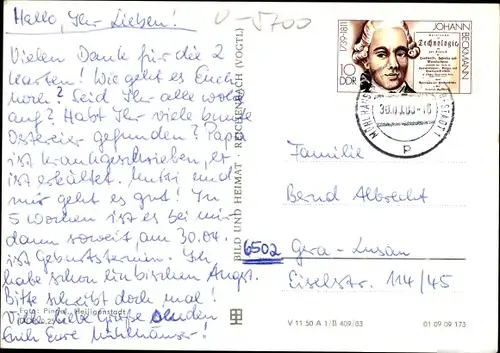 Hallo, Ihr Lieben!
U-5700
Vielen Dank für die 2
Karten! Wie geht es Euch
noch? Seid Ihr alle wohl
auf? Habt Ihr viele bunte
Ostereier gefunden? Papi
ist krankgeschrieben, er
ist erkältet. Mutti und
mir geht es gut! In
5 Wochen ist es bei mir
dann soweit, am 30.04.
ist Geburtstermin. Ich
habe schon ein bißchen Angst.
Bitte schreibt doch mal!
Viele liebe Grüße senden
Euch Eure Mühlhäuser!
Foto: Pingel, Heiligenstadt
BILD UND HEIMAT · REICHENBACH (VOGTL)
1739-1811
JOHANN BECKMANN
Technologie
10
DDR
MÜHLHAUSEN
STADT 1
Familie
Bernd Albrecht
6502 Gera-Lusan
Eiselstr. 114/45
V 11 50 A 1/B 409/83
01 09 09 173